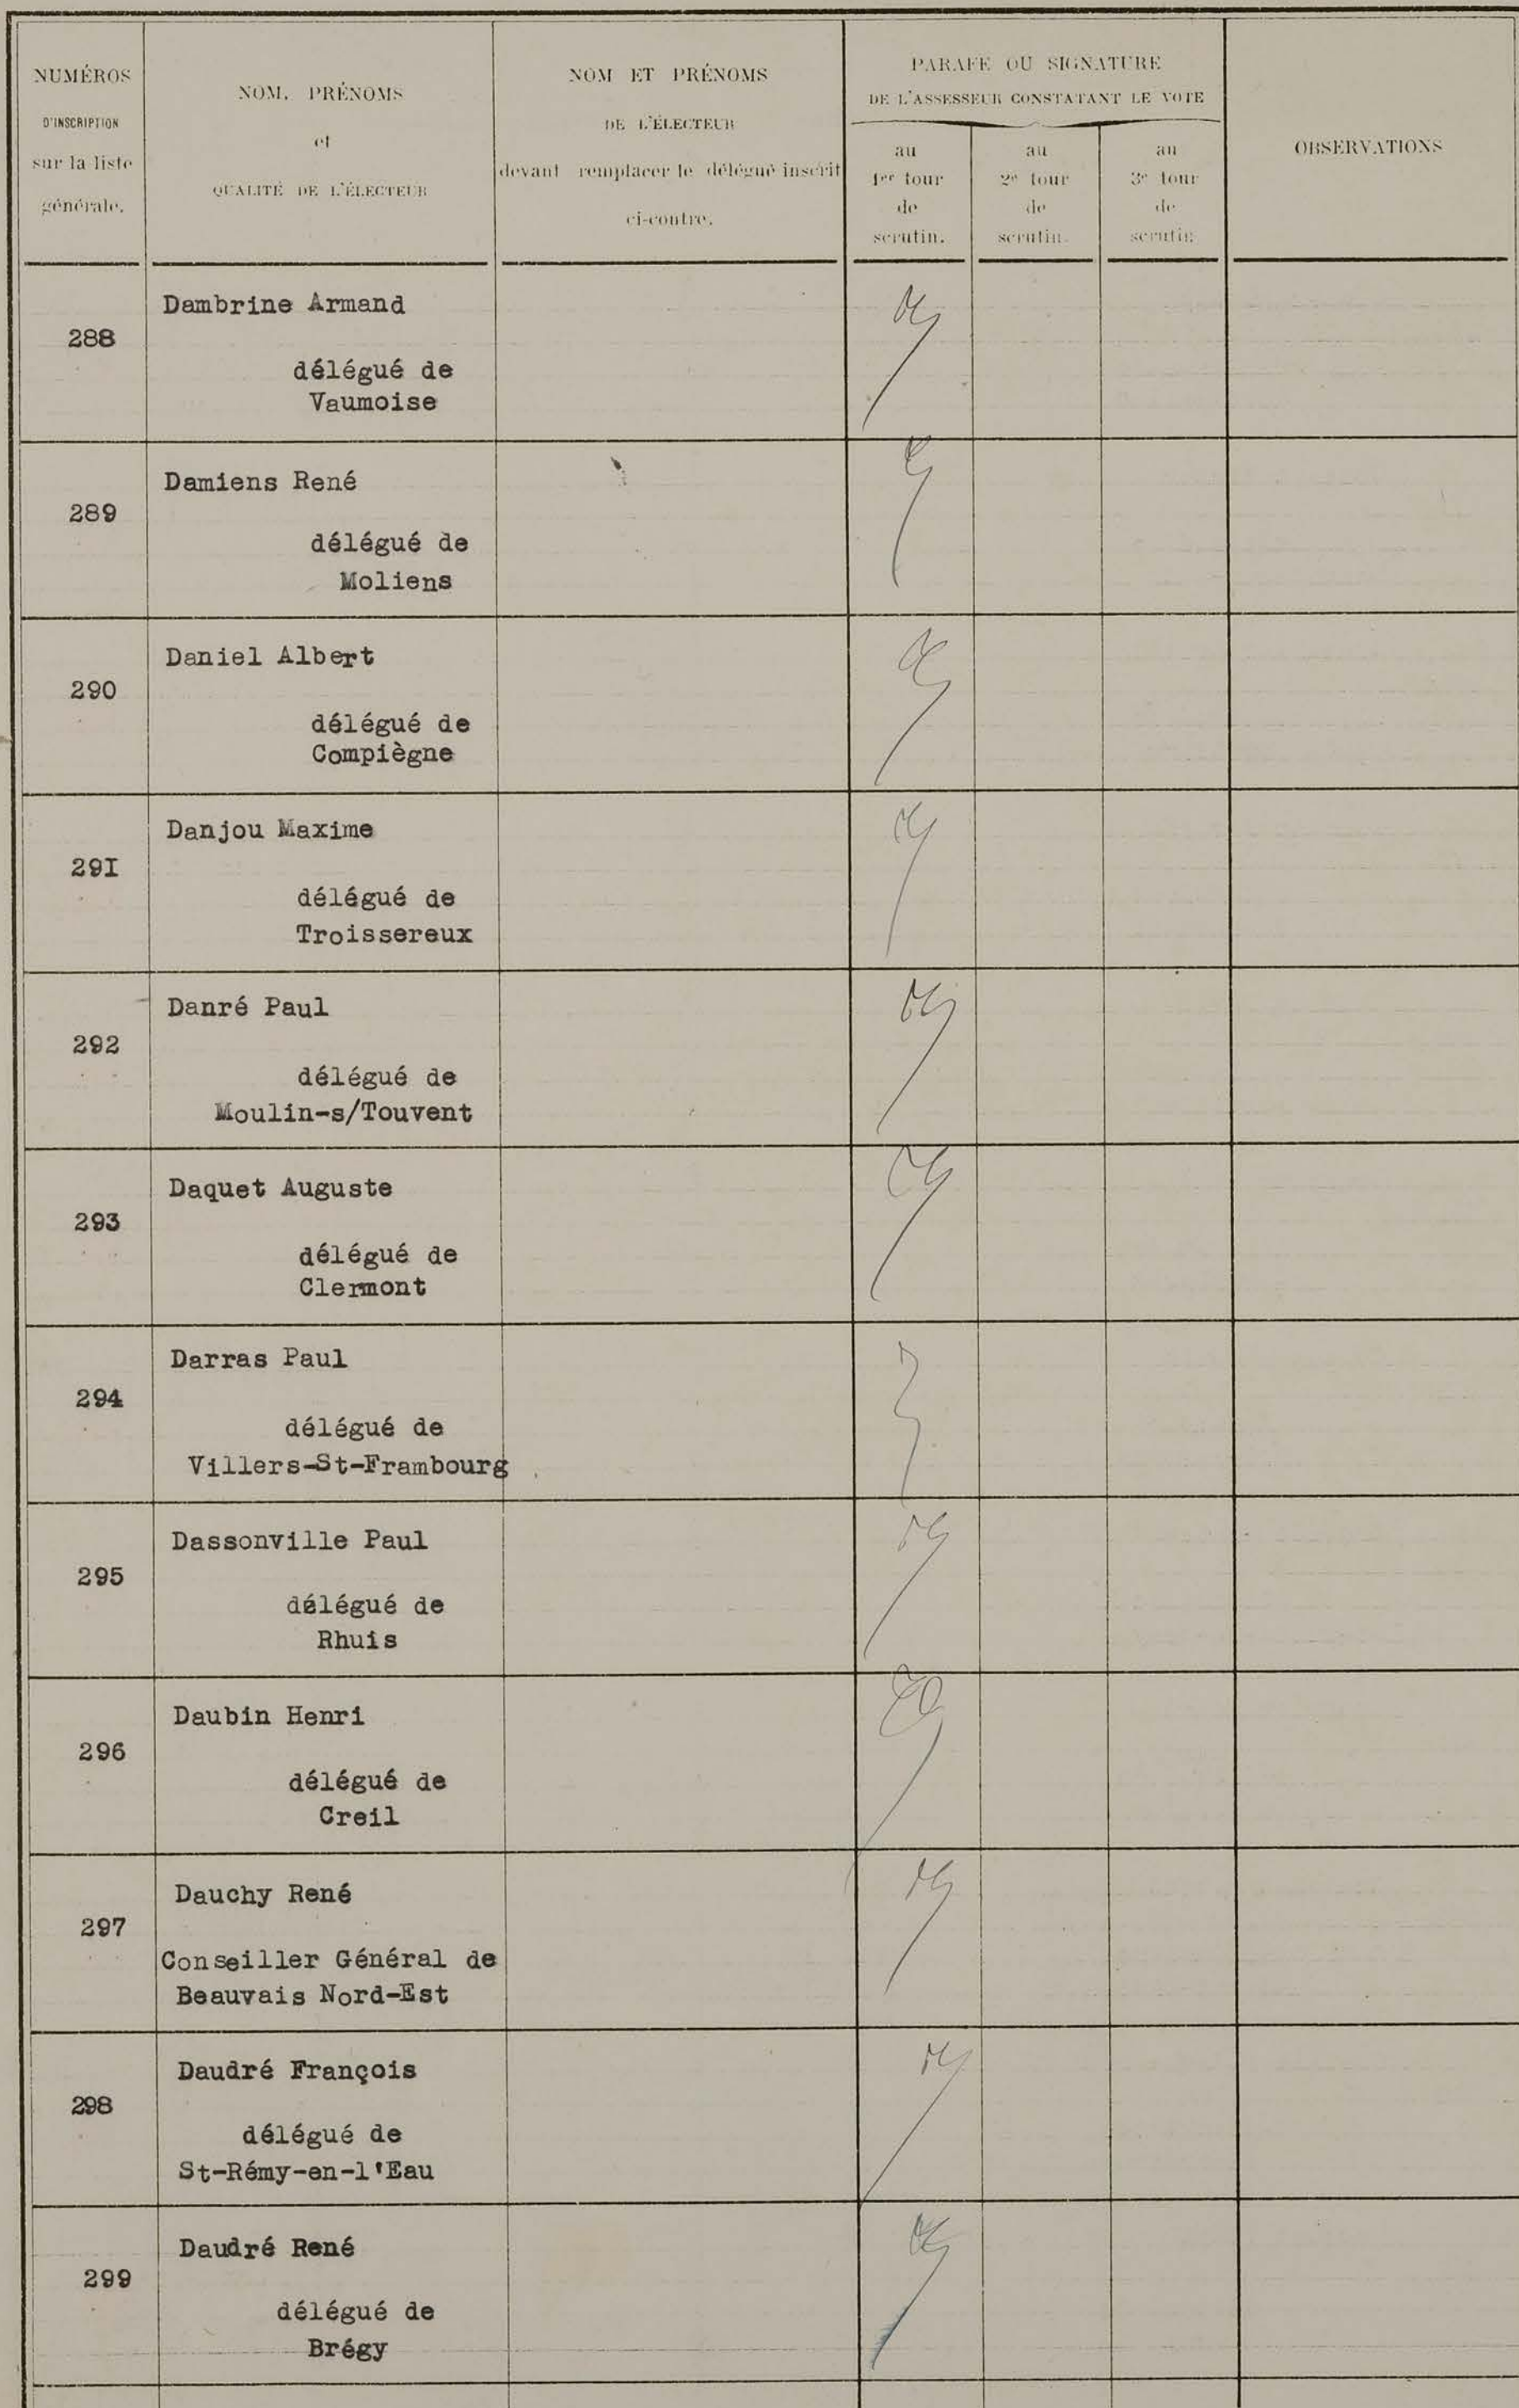 NUMÉROS
D'INSCRIPTION
sur la liste
générale.
NOM, PRÉNOMS
et
QUALITÉ DE L'ÉLECTEUR
NOM ET PRÉNOMS
DE L'ÉLECTEUR
devant remplacer le délégué inscrit
ci-contre.
PARAFE OU SIGNATURE
DE L'ASSESSEUR CONSTATANT LE VOTE
au
1er tour
de
scrutin.
au
2e tour
de
scrutin.
au
3e tour
de
scrutin
OBSERVATIONS
288
Dambrine Armand
délégué de
Vaumoise
289
Damiens René
délégué de
Moliens
290
Daniel Albert
délégué de
Compiègne
29I
Danjou Maxime
délégué de
Troissereux
292
Danré Paul
délégué de
Moulin-s/Touvent
293
Daquet Auguste
délégué de
Clermont
294
Darras Paul
délégué de
Villers-St-Frambourg
295
Dassonville Paul
délégué de
Rhuis
296
Daubin Henri
délégué de
Creil
297
Dauchy René
Conseiller Général de
Beauvais Nord-Est
298
Daudré François
délégué de
St-Rémy-en-l'Eau
299
Daudré René
délégué de
Brégy